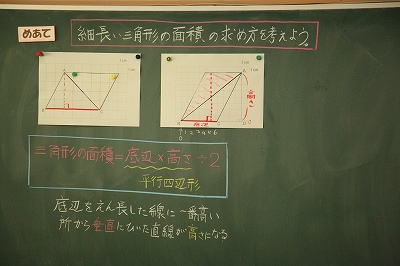 めあて
細長い三角形の面積の求め方を考えよう。
高さ
底辺
三角形の面積=底辺×高さ÷2
平行四辺形
底辺をえん長した線に一番高い
所から垂直にひいた直線が高さになる